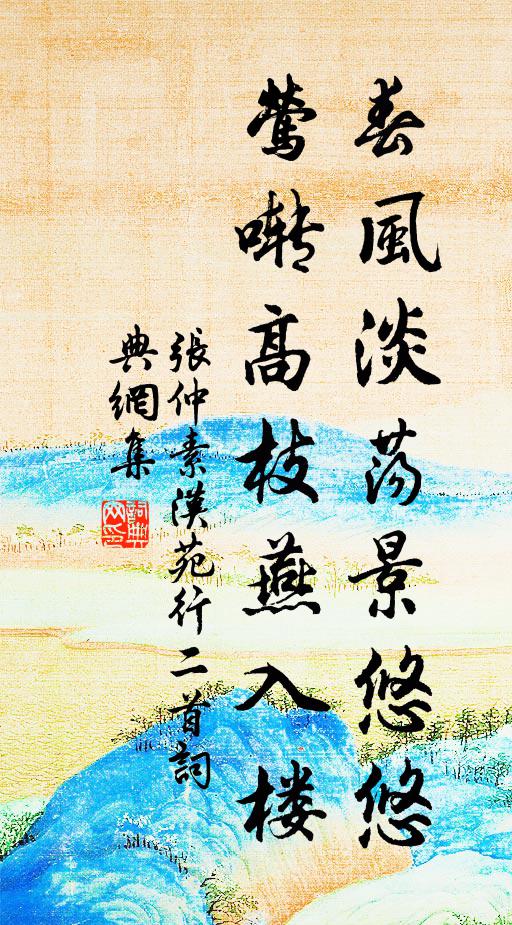 春風淡荡景悠悠
莺啭高枝燕入楼
張仲素漢苑行二首詞
典網集
詞典
网印